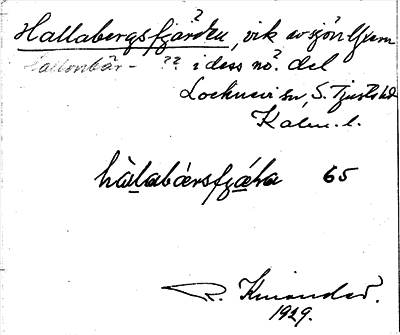 Hallabergsfjärden, vik av sjön Yxern
Hallonbär- ?? i dess nö. del
Locknevi sn, S. Tjusts hd
Kalm. l.
hàlabærsfjæ̀ḷa 65
R. Kinander.
1929.